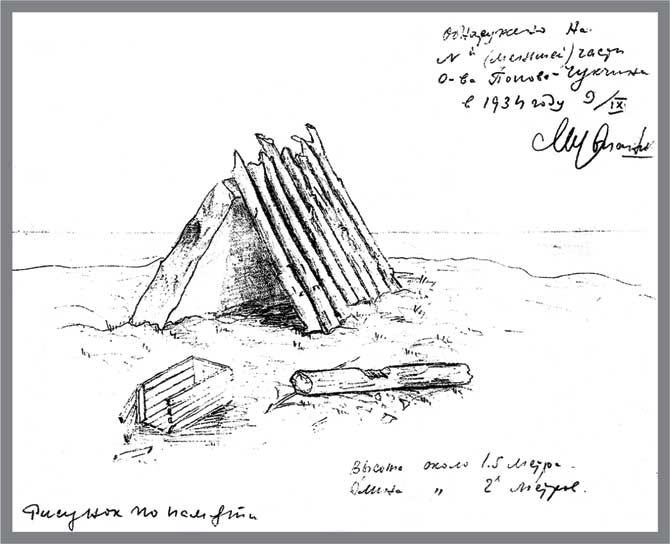 Обнаружено на
N й (меньшей) части
о-ва Попова-Чукчина
в 1934 году 9/IX
Высота около 1.5 метра.
Длина " 2 х метров.
Рисунок по памяти